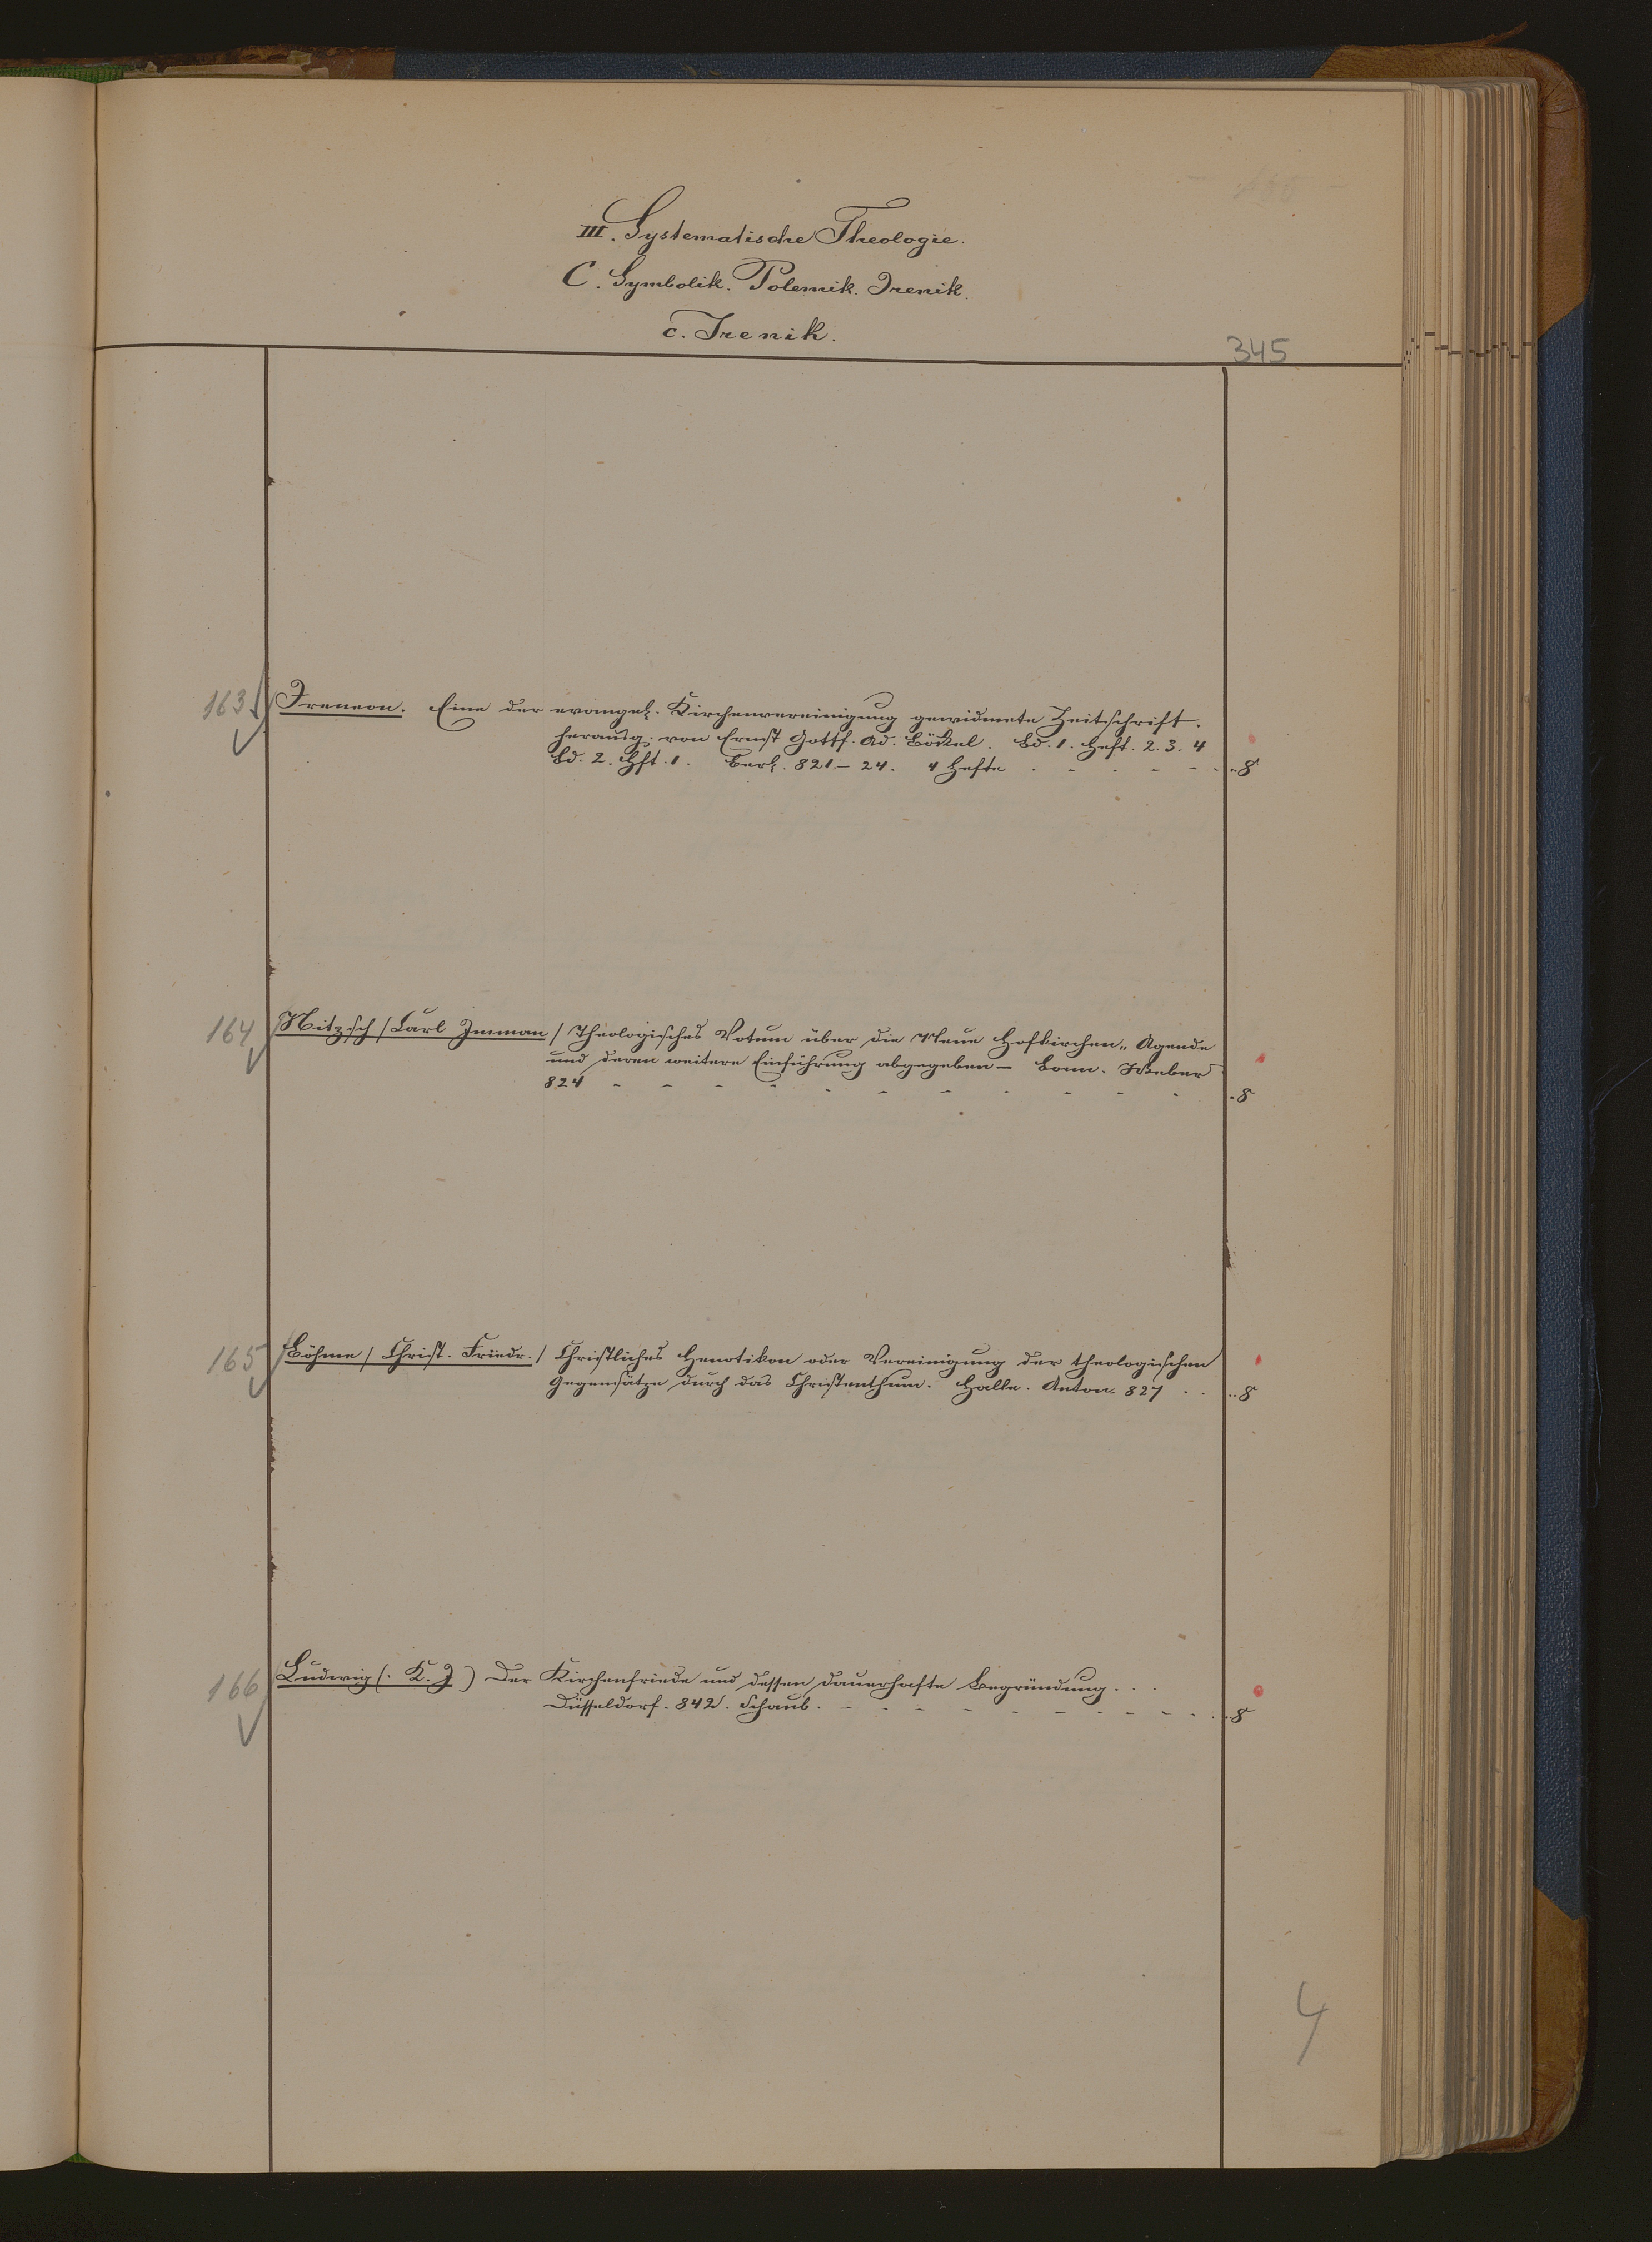 III. Systematische Theologie.
C. Symbolik. Polemik. Irenik.
c. Irenik.
345
163 Ireneon. Eine der evangel. Kirchenvereinigung gewidmete Zeitschrift.
herausg. von Ernst Gottf. Ad. Böckel. Bd. 1. Heft. 2. 3. 4
Bd. 2. Hft. 1. Berl. 821 – 24. 4 Hefte 8
164 Nitzsch / Carl Imman / Theologisches Votum über die Neue Hofkirchen„ Agende
und deren weitere Einführung abgegeben – Bonn. Weber
824 8
165 Böhme / Christ. Friedr. / Christliches Henotikon oder Vereinigung der theologischen
Gegensätze durch das Christenthum. Halle. Anton. 827 8
166 Ludwig (. K. J ) Der Kirchenfriede und dessen dauerhafte Begründung.
Düsseldorf. 842. Schaub. 8
4